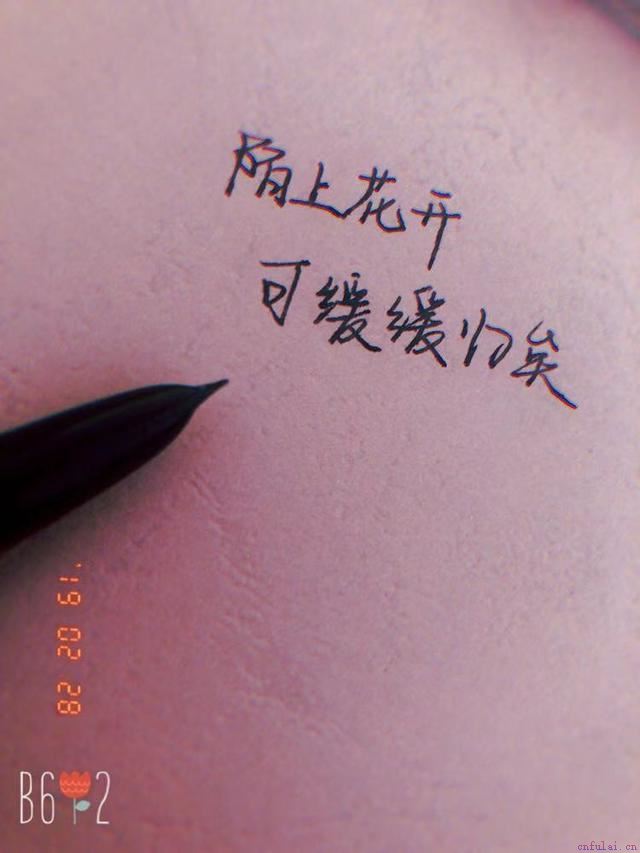 陌上花开
可缓缓归矣
'19 02 28
B612
cnfulai.cn